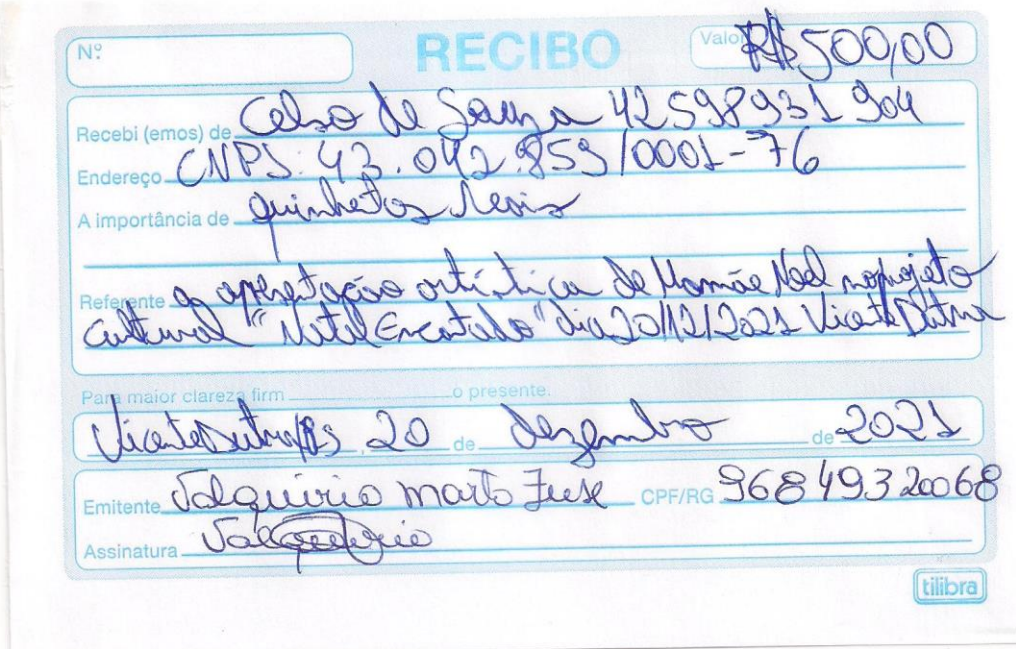 Nº RECIBO Valor R$ 500,00
Recebi (emos) de Celso de Souza 42598931904
Endereço CNPJ: 43.042.859/0001-76
A importância de quinhetos reais
Referente a apresetação artística de Mamãe Noel no projeto
cultural "Natal Encatado" dia 20/12/2021 Vicente Dutra
Para maior clareza firm o presente.
Vicente Dutra/RS, 20 de dezembro de 2021
Emitente Valquirio CPF/RG 96849320068
Assinatura
tilibra